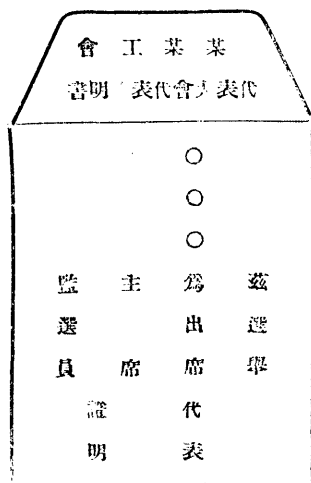 某某工會
代表大會代表明書
茲選舉
○○○爲出席代表
主席
監選員
證明